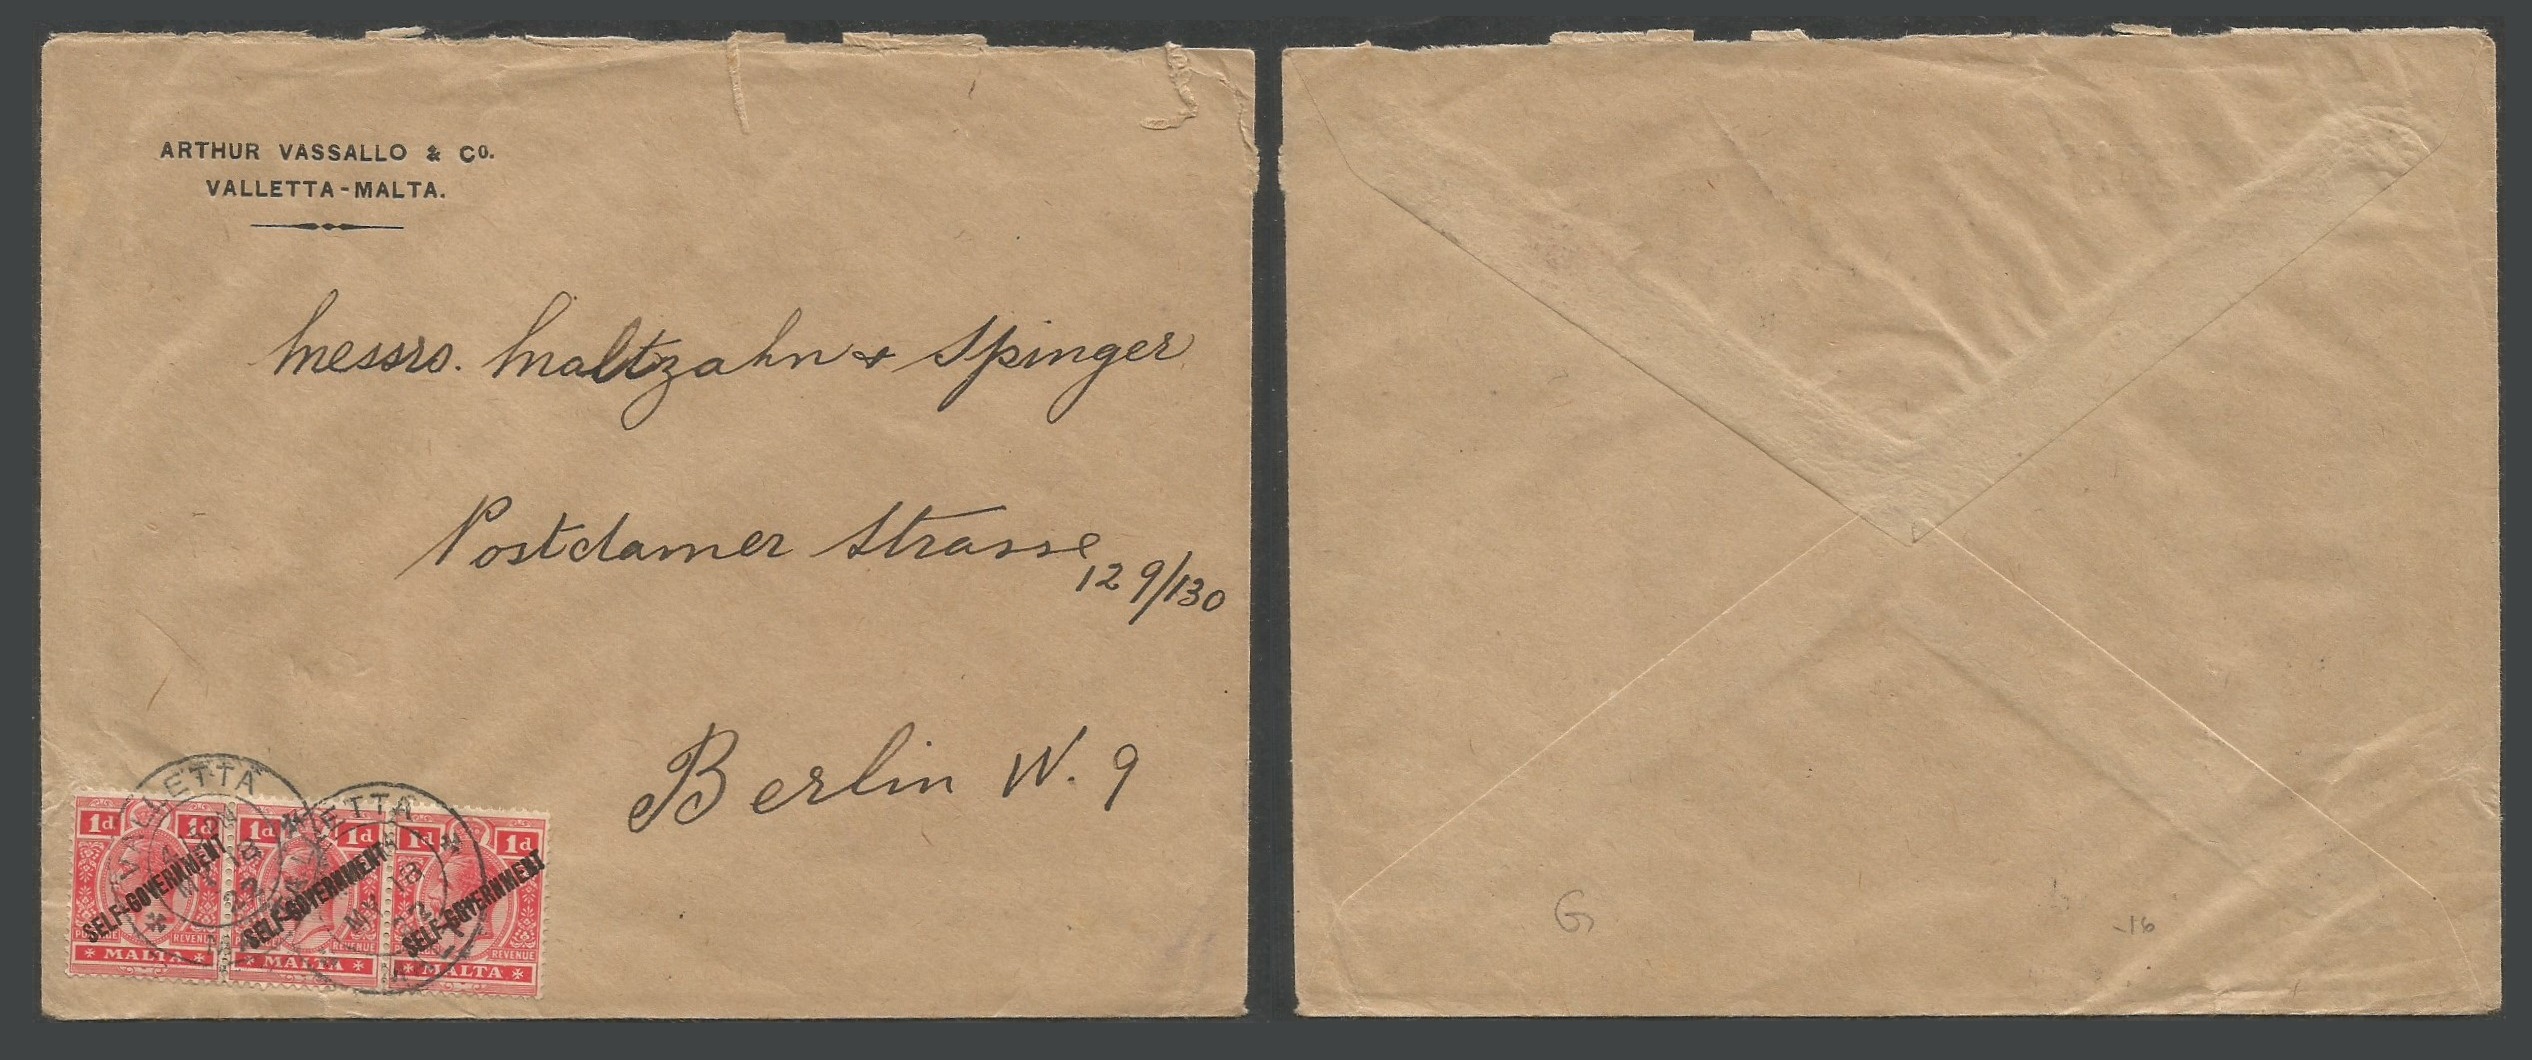 ARTHUR VASSALLO & Co.
VALLETTA-MALTA.
Messrs. Maltzahn & Spinger
Postdamer Strasse
129/130
Berlin W. 9
VALLETTA
MY 18
22
VALLETTA
MY 18
22
1d 1d
SELF-GOVERNMENT
POSTAGE REVENUE
MALTA
1d 1d
SELF-GOVERNMENT
POSTAGE REVENUE
MALTA
1d 1d
SELF-GOVERNMENT
POSTAGE REVENUE
MALTA
G
-16